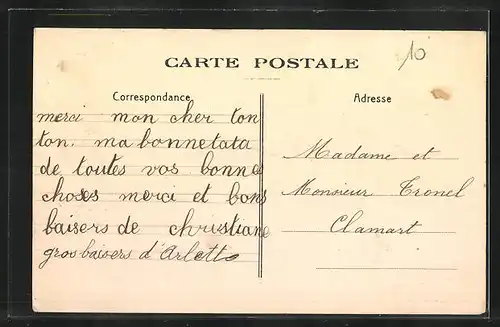 10
CARTE POSTALE
Correspondance
merci mon cher ton
ton. ma bonne tata
de toutes vos bonnes
choses merci et bons
baisers de christiane
gros baisers d'Arlette
Adresse
Madame et
Monsieur Tronel
Clamart